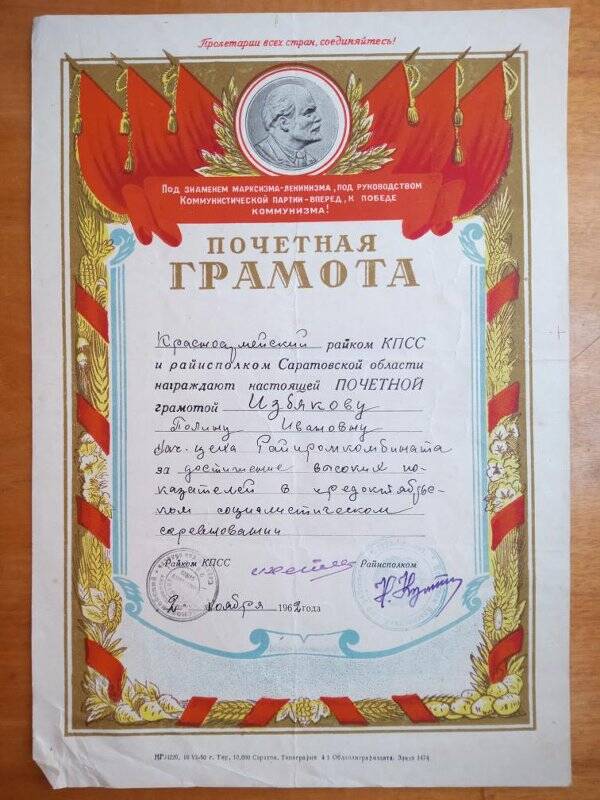 Пролетарии всех стран, соединяйтесь!
Под знаменем марксизма-ленинизма, под руководством
Коммунистической партии - вперед, к победе
коммунизма!
ПОЧЕТНАЯ
ГРАМОТА
Красноармейский райком КПСС
и райисполком Саратовской области
награждают настоящей ПОЧЕТНОЙ
грамотой Избякову
Полину Ивановну
Нач. цеха Райпромкомбината
за достижение высоких по-
казателей в предоктябрьс-
ком социалистическом
соревновании
Райком КПСС Райисполком
2 ноября 1962 года
10 VI-60 г. Тир. 10,000 Саратов. Типография № 1 Облполиграфиздата. Заказ 1474